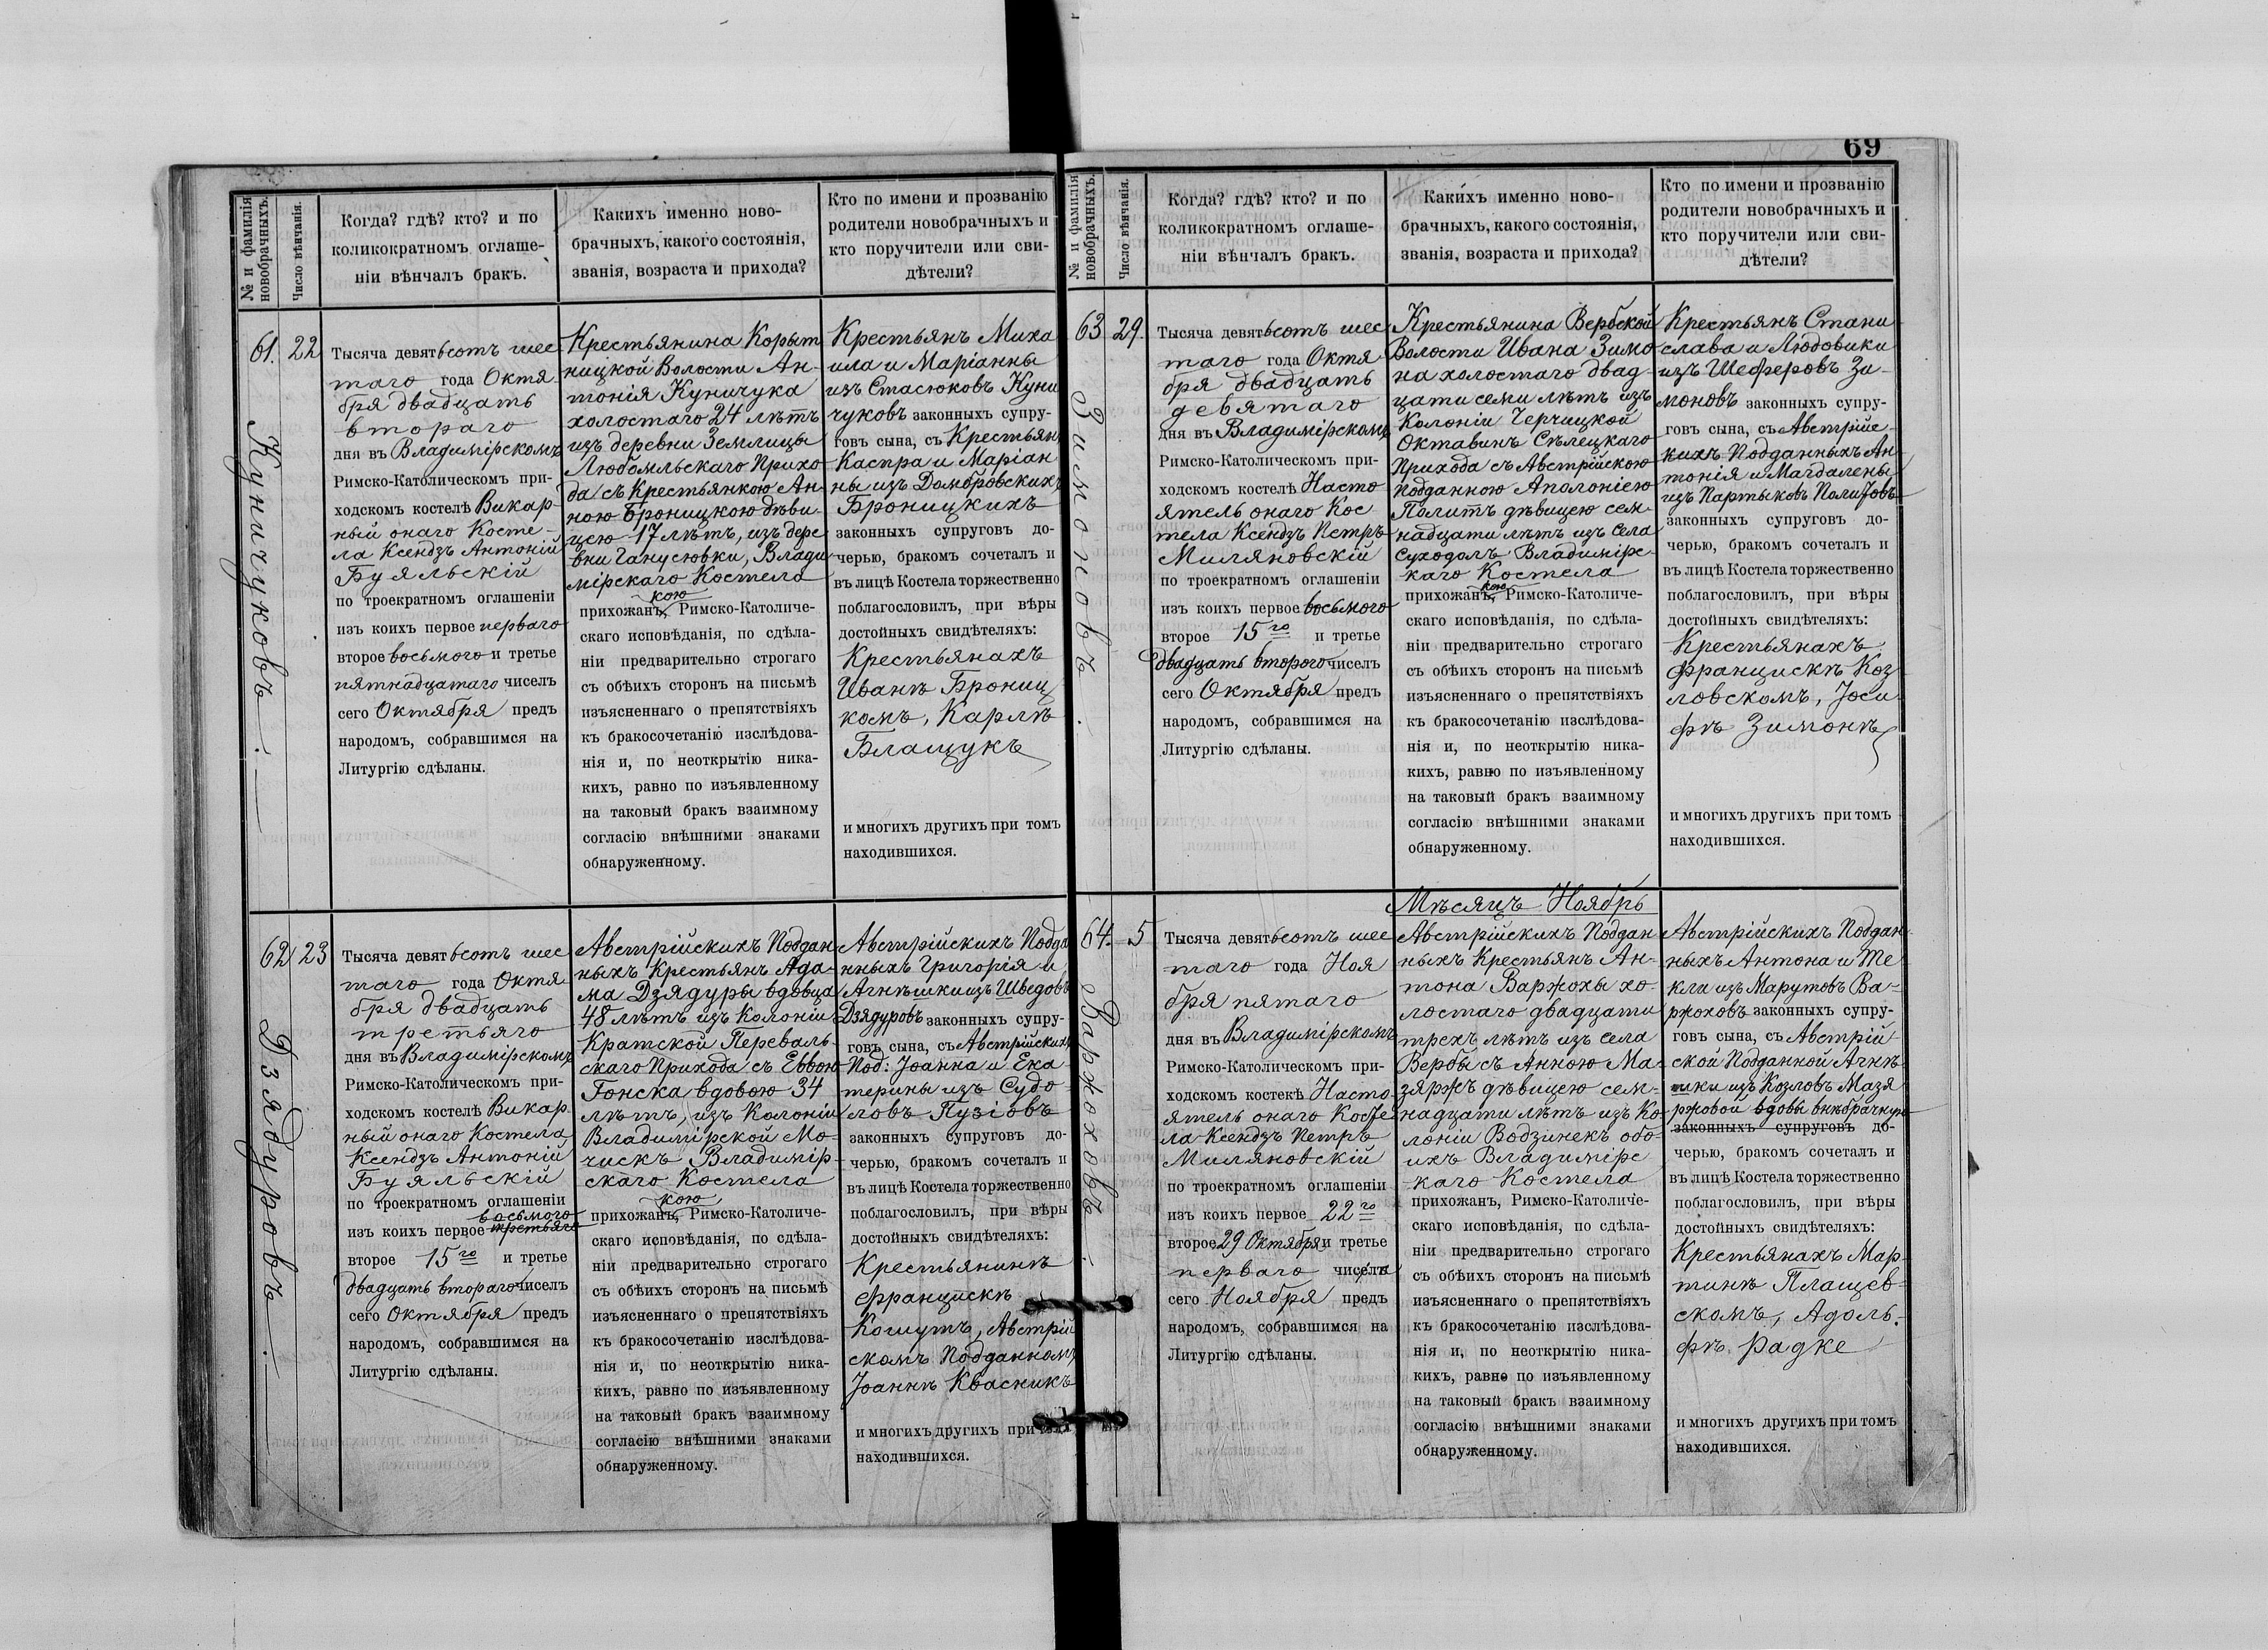 69
№ и фамилія
новобрачныхъ.
Число вѣнчанія.
Когда? гдѣ? кто? и по
коликократномъ оглаше-
ніи вѣнчалъ бракъ.
Какихъ именно ново-
брачныхъ, какого состоянія,
званія, возраста и прихода?
Кто по имени и прозванію
родители новобрачныхъ и
кто поручители или сви-
дѣтели?
61.
Куничуковъ
22
Тысяча девятьсотъ шес
таго года Октя-
бря двадцать
втораго
дня въ Владимірскомъ
Римско-Католическомъ при-
ходскомъ костелѣ Викар-
ный онаго Косте-
ла Ксендзъ Антоній
Буяльскій
по троекратномъ оглашеніи
изъ коихъ первое перваго
второе восьмого и третье
пятнадцатаго чиселъ
сего Октября предъ
народомъ, собравшимся на
Литургію сдѣланы.
Крестьянина Корыт
ницкой Волости Ан-
тонія Куничука
холостаго 24 лѣтъ
изъ деревни Землицы
Любомльскаго Прихо-
да съ Крестьянкою Ан-
ною Броницкою дѣви-
цею 17 лѣтъ, изъ дере
вни Ганусювки, Влади
мірскаго Костела
кою
прихожанъ, Римско-Католиче-
скаго исповѣданія, по сдѣла-
ніи предварительно строгаго
съ обѣихъ сторонъ на письмѣ
изъясненнаго о препятствіяхъ
къ бракосочетанію изслѣдова-
нія и, по неоткрытію ника-
кихъ, равно по изъявленному
на таковый бракъ взаимному
согласію внѣшними знаками
обнаруженному.
Крестьянъ Миха
ила и Маріанны
изъ Стасюковъ Куни
чуковъ законныхъ супру-
говъ сына, съ Крестьян
Каспра и Маріан
ны изъ Домбровскихъ
Броницкихъ
законныхъ супруговъ до-
черью, бракомъ сочеталъ и
въ лицѣ Костела торжественно
поблагословилъ, при вѣры
достойныхъ свидѣтеляхъ:
Крестьянахъ
Иванѣ Брониц
комъ, Карлѣ
Блащукъ
и многихъ другихъ при томъ
находившихся.
62
Дзядуровъ
23
Тысяча девятьсотъ шес
таго года Октя
бря двадцать
третьяго
дня въ Владимірскомъ
Римско-Католическомъ при-
ходскомъ костелѣ Викар
ный онаго Костела
Ксендзъ Антоній
Буяльскій
по троекратномъ оглашеніи
восьмого
изъ коихъ первое третьяго
второе 15го и третье
двадцать втораго чиселъ
сего Октября предъ
народомъ, собравшимся на
Литургію сдѣланы.
Австрійскихъ Поддан
ныхъ Крестьянъ Ада-
ма Дзядуры вдовца
48 лѣтъ изъ Колоніи
Кратской Переваль-
скаго Прихода съ Еввою
Гонска вдовою 34
лѣтъ, изъ Колоніи
Владимірской Мо-
чискъ Владимір-
скаго Костела
кою
прихожанъ, Римско-Католиче-
скаго исповѣданія, по сдѣла-
ніи предварительно строгаго
съ обѣихъ сторонъ на письмѣ
изъясненнаго о препятствіяхъ
къ бракосочетанію изслѣдова-
нія и, по неоткрытію ника-
кихъ, равно по изъявленному
на таковый бракъ взаимному
согласію внѣшними знаками
обнаруженному.
Австрійскихъ Подда
нныхъ Григорія и
Агнѣшки изъ Шведовъ
Дзядуровъ законныхъ супру-
говъ сына, съ Австрійскихъ
Под: Іоанна и Ека-
терины изъ Судо-
ловъ Пузіовъ
законныхъ супруговъ до-
черью, бракомъ сочеталъ и
въ лицѣ Костела торжественно
поблагословилъ, при вѣры
достойныхъ свидѣтеляхъ:
Крестьянинѣ
Францискѣ
Кошутъ, Австрій
скомъ Подданномъ
Іоаннѣ Квасникъ
и многихъ другихъ при томъ
находившихся.
№ и фамилія
новобрачныхъ.
Число вѣнчанія.
Когда? гдѣ? кто? и по
коликократномъ оглаше-
ніи вѣнчалъ бракъ.
Какихъ именно ново-
брачныхъ, какого состоянія,
званія, возраста и прихода?
Кто по имени и прозванію
родители новобрачныхъ и
кто поручители или сви-
дѣтели?
63
Зимоновъ.
29.
Тысяча девятьсотъ шес
таго года Октя
бря двадцать
девятаго
дня въ Владимірскомъ
Римско-Католическомъ при-
ходскомъ костелѣ Насто
ятель онаго Кос
тела Ксендзъ Петръ
Миляновскій
по троекратномъ оглашеніи
изъ коихъ первое восьмого
второе 15го и третье
двадцать второго чиселъ
сего Октября предъ
народомъ, собравшимся на
Литургію сдѣланы.
Крестьянина Вербской
Волости Ивана Зимо
на холостаго двад-
цати семи лѣтъ изъ
Колоніи Черчицкой
Октавинъ Сѣлецкаго
Прихода съ Австрійскою
подданною Аполоніею
Политъ дѣвицею сем-
надцати лѣтъ изъ Села
Суходолъ Владимірс-
каго Костела
кою
прихожанъ, Римско-Католиче-
скаго исповѣданія, по сдѣла-
ніи предварительно строгаго
съ обѣихъ сторонъ на письмѣ
изъясненнаго о препятствіяхъ
къ бракосочетанію изслѣдова-
нія и, по неоткрытію ника-
кихъ, равно по изъявленному
на таковый бракъ взаимному
согласію внѣшними знаками
обнаруженному.
Крестьянъ Стани
слава и Людовики
изъ Шеферовъ Зи-
моновъ законныхъ супру-
говъ сына, съ Австрійс-
кихъ Подданныхъ Ан
тонія и Магдалены
изъ Партыковъ Политовъ
законныхъ супруговъ до-
черью, бракомъ сочеталъ и
въ лицѣ Костела торжественно
поблагословилъ, при вѣры
достойныхъ свидѣтеляхъ:
Крестьянахъ
Францискѣ Коз
ловскомъ, Іоси
фѣ Зимонѣ
и многихъ другихъ при томъ
находившихся.
Мѣсяцъ Ноябрь
64.
Варжоховъ.
5
Тысяча девятьсотъ шес
таго года Ноя
бря пятаго
дня въ Владимірскомъ
Римско-Католическомъ при-
ходскомъ костекѣ Насто
ятель онаго Косте
ла Ксендзъ Петръ
Миляновскій
по троекратномъ оглашеніи
изъ коихъ первое 22го
второе 29 Октября и третье
перваго числа
сего Ноября предъ
народомъ, собравшимся на
Литургію сдѣланы.
Австрійскихъ Поддан
ныхъ Крестьянъ Ан-
тона Варжохы хо-
лостаго двадцати
трехъ лѣтъ изъ села
Вербы съ Анною Ма-
зяржъ дѣвицею сем-
надцати лѣтъ изъ Ко
лоніи Водзинекъ обо-
ихъ Владимірс
каго Костела
прихожанъ, Римско-Католиче-
скаго исповѣданія, по сдѣла-
ніи предварительно строгаго
съ обѣихъ сторонъ на письмѣ
изъясненнаго о препятствіяхъ
къ бракосочетанію изслѣдова-
нія и, по неоткрытію ника-
кихъ, равно по изъявленному
на таковый бракъ взаимному
согласію внѣшними знаками
обнаруженному.
Австрійскихъ Поддан
ныхъ Антона и Те-
кли изъ Марутовъ Ва-
ржоховъ законныхъ супру-
говъ сына, съ Австрій-
ской Подданной Агнѣ-
шки изъ Козловъ Мазя
ржовой вдовы внѣбрачную
законныхъ супруговъ до-
черью, бракомъ сочеталъ и
въ лицѣ Костела торжественно
поблагословилъ, при вѣры
достойныхъ свидѣтеляхъ:
Крестьянахъ Мар-
тинѣ Плащев-
скомъ, Адоль-
фѣ Радке
и многихъ другихъ при томъ
находившихся.